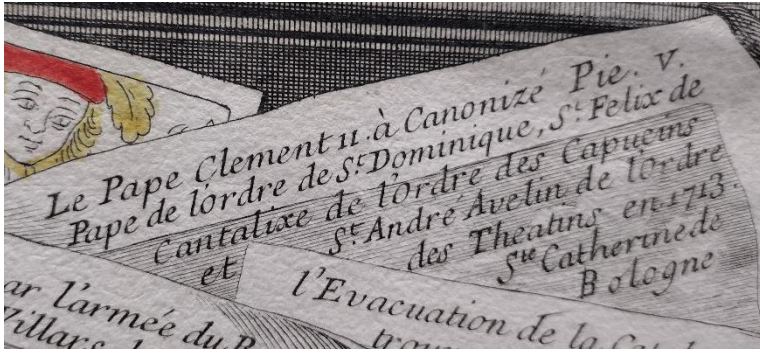 Le Pape Clement 11. à Canonizé Pie. v.
Pape de l'ordre de St. Dominique, St. Felix de
Cantalixe de l'ordre des Capucins
St. André Avelin de l'ordre
des Theatins en 1713.
et Ste Catherine de
Bologne
l'Evacuation de la
ar l'armée du
Villars